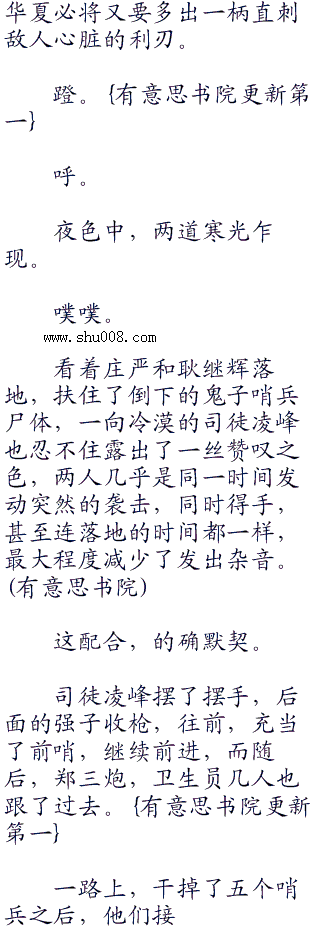 华夏必将又要多出一柄直刺
敌人心脏的利刃。
蹬。{有意思书院更新第
一}
呼。
夜色中，两道寒光乍
现。
噗噗。
www.shu008.com
看着庄严和耿继辉落
地，扶住了倒下的鬼子哨兵
尸体，一向冷漠的司徒凌峰
也忍不住露出了一丝赞叹之
色，两人几乎是同一时间发
动突然的袭击，同时得手，
甚至连落地的时间都一样，
最大程度减少了发出杂音。
(有意思书院)
这配合，的确默契。
司徒凌峰摆了摆手，后
面的强子收枪，往前，充当
了前哨，继续前进，而随
后，郑三炮，卫生员几人也
跟了过去。{有意思书院更新
第一}
一路上，干掉了五个哨
兵之后，他们接